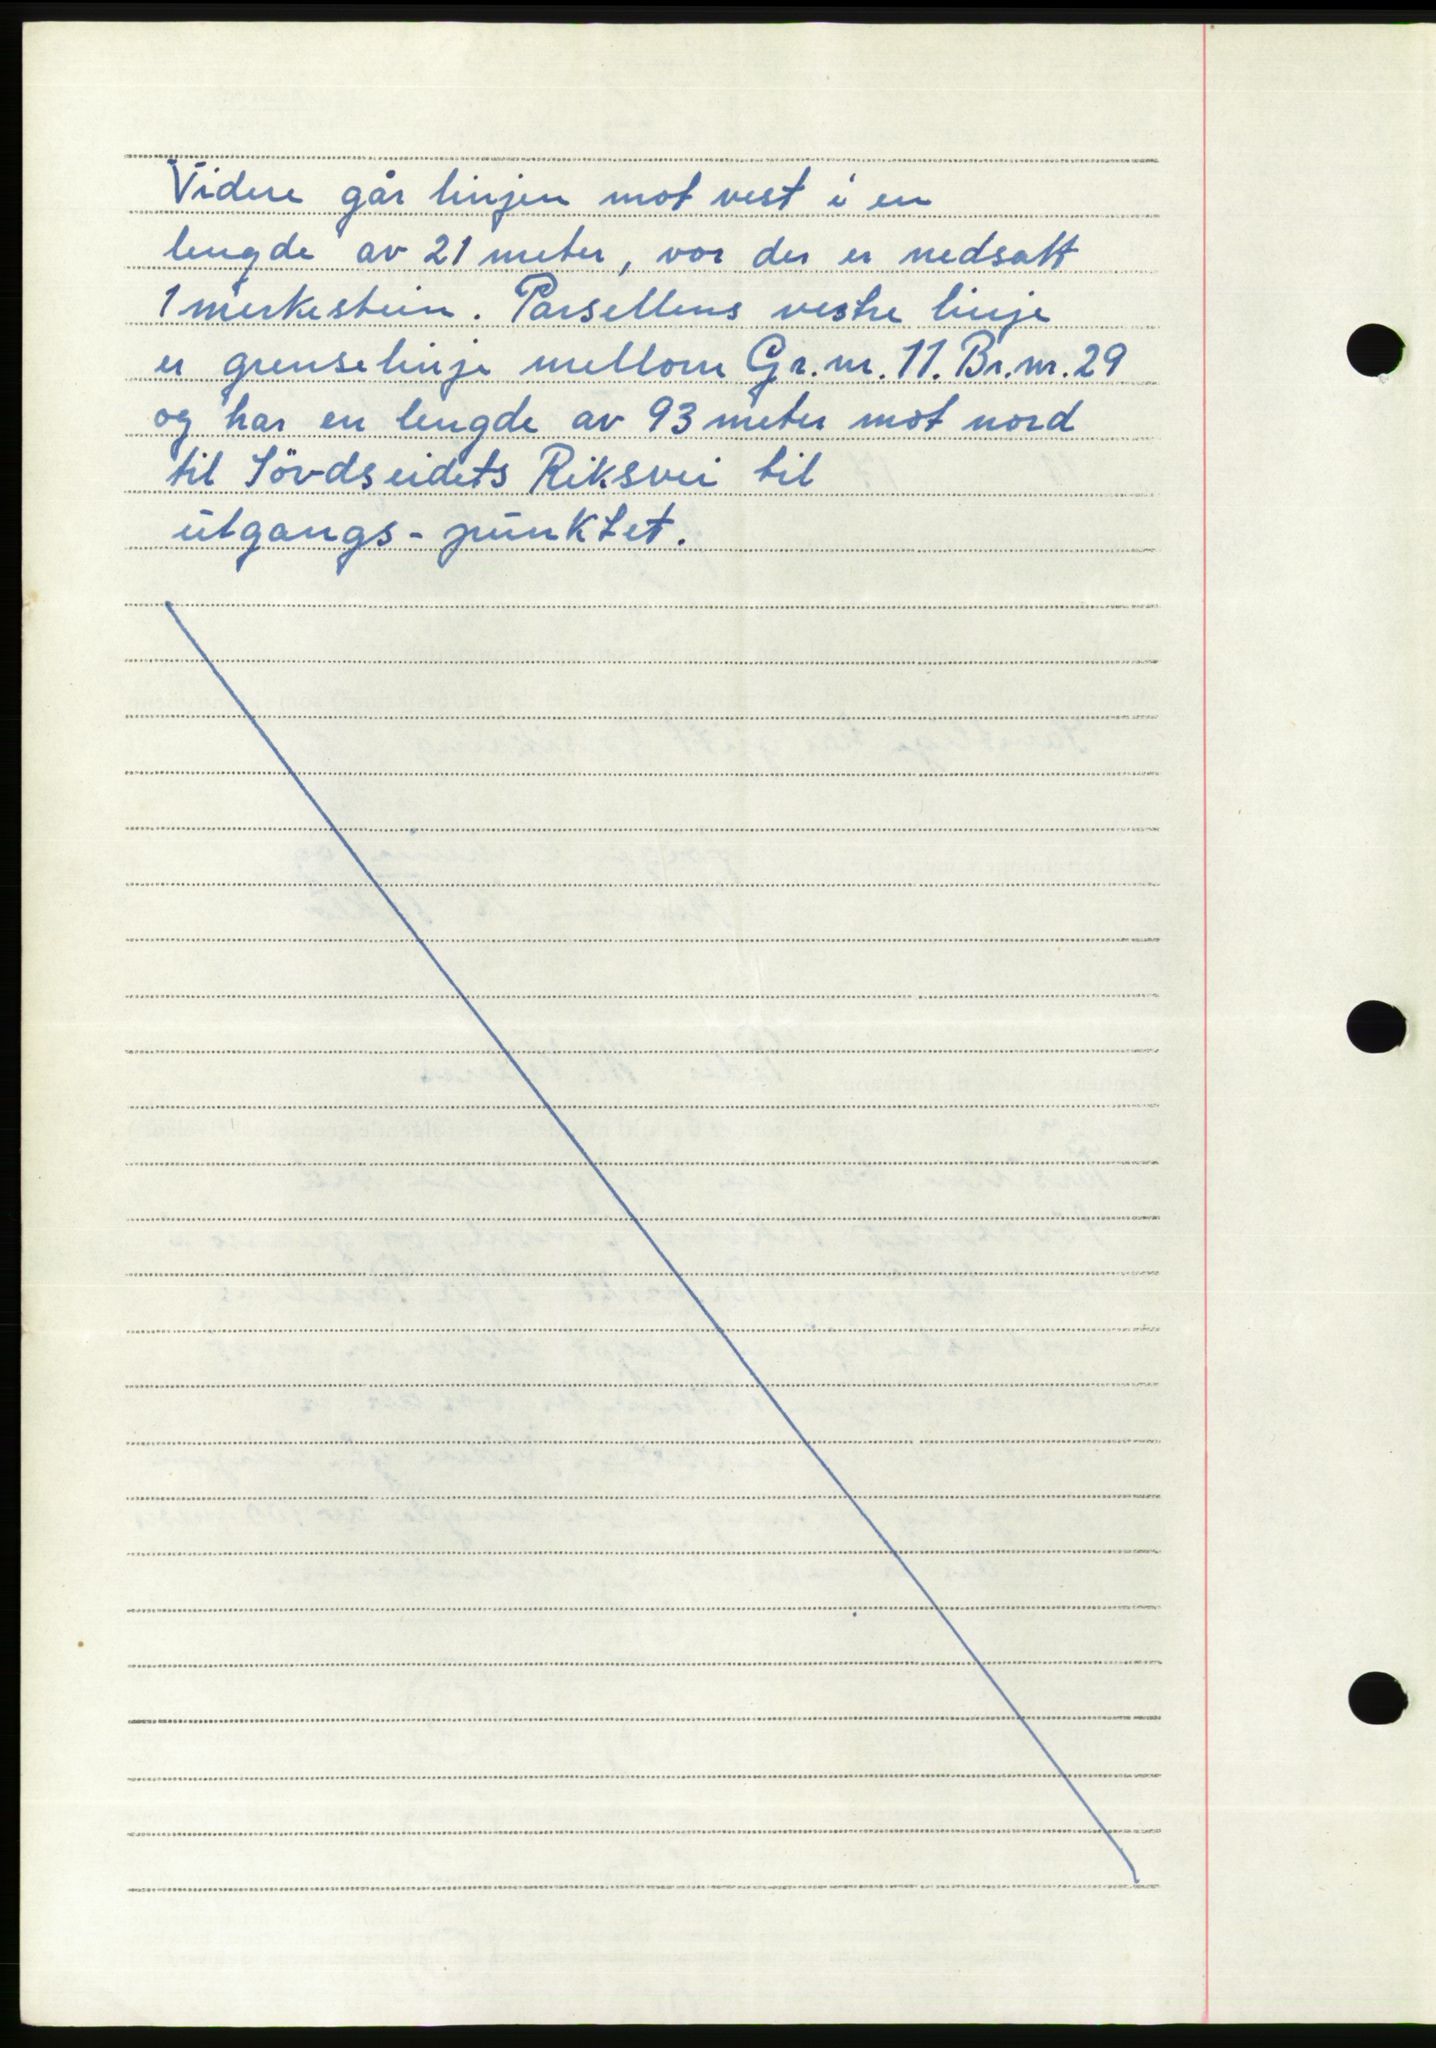 Videre går linjen mot vest i en
lengde av 21 meter, vor der er nedsatt
1 merkestein. Parsellens vestre linje
er grenselinje mellom Gr.nr. 11. Br.nr. 29
og har en lengde av 93 meter mot nord
til Sövdseidets Riksvei til
utgangs-punktet.